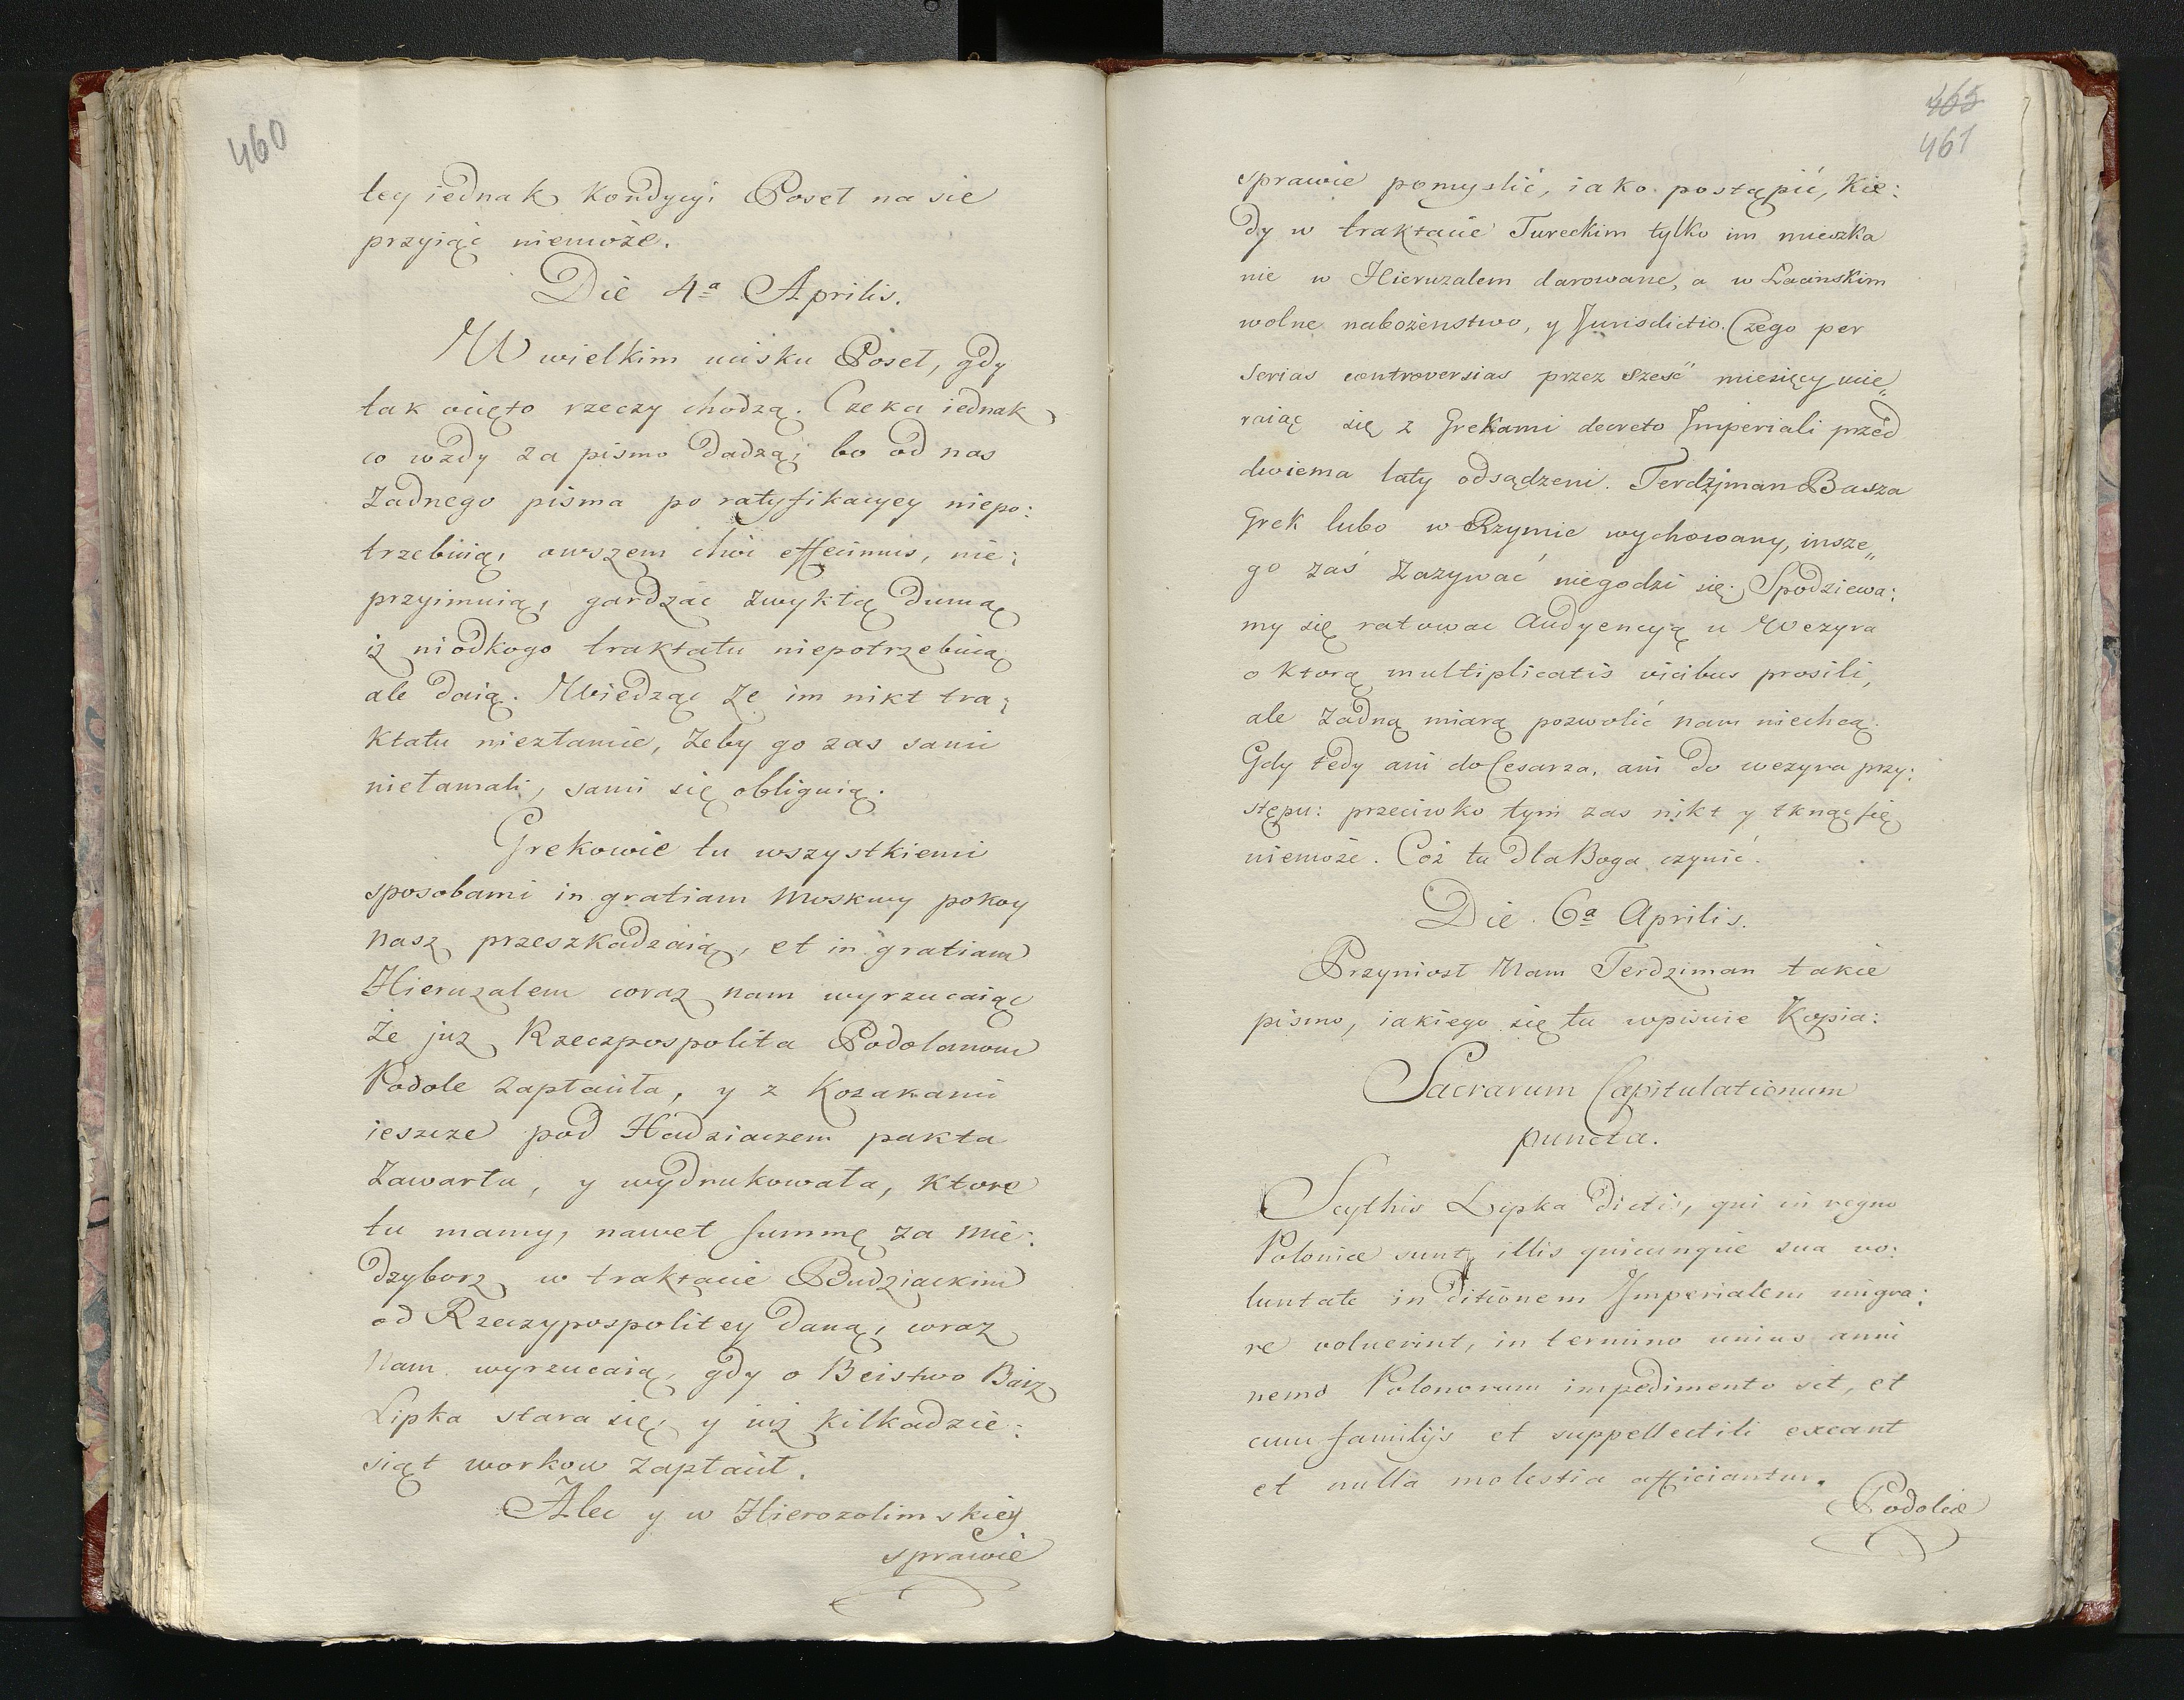 460
tey iednak kondycyi Poseł na sie
przyiąć niemoże.
Die 4ª Aprilis.
W wielkim ucisku Poseł, gdy
tak ocięto rzeczy chodzą. Czeka iednak
co wzdy za pismo dadzą; bo od nas
żadnego pisma po ratyfikacyey niepo:
trzebuią, owszem chòc effecimus, nie:
przyimuią, gardząc zwykłą dumą
iż niodkogo traktatu niepotrzebuią
ale daią. Wiedząc że im nikt tra:
ktatu niezłamie, żeby go zas sami
niełamali, sami się obliguią.
Grekowie tu wszystkiemi
sposobami in gratiam Moskwy pokoy
nasz przeszkadzaią, et in gratiam
Hieruzalem coraz nam wyrzucaiąc
że juz Rzeczpospolita Podolanom
Podole zapłaciła, y z Kozakami
ieszcze pod Hadziaczem pakta
zawarła, y wydrukowała, ktore
tu mamy, nawet summę za Mie:
dzyborz w traktacie Budziackim
od Rzeczypospolitey daną, coraz
Nam wyrzucaią, gdy o Beistwo Bairz
Lipka stara się, y iuż kilkadzie:
siąt workow zapłacił.
Alec y w Hierozolimskiey
sprawie
465
461
sprawie pomyslić, iako postąpić, kie:
dy w traktacie Tureckim tylko im mieszka
nie w Hieruzalem darowane, a w Łacinskim
wolne nabożenstwo, y Jurisdictio. Czego per
serias controversias przez sześć miesięcy wie„
raiąc się z Grekami decreto Imperiali przed
dwiema laty odsądzeni. Terdzjman Basza
Grek lubo w Rzymie wychowany, insze„
go zaś zazywać niegodzi się. Spodziewa:
my się ratować Audyencyą u Wezyra
o ktorą multiplicatis vicibus prosili,
ale żadną miarą pozwolić nam niechcą.
Gdy tedy ani do Cesarza, ani do wezyra przy:
stępu: przeciwko tym zas nikt y tknąć się
niemoże. Coż tu dla Boga czynić.
Die 6ª Aprilis.
Przyniosł Nam Terdziman takie
pismo, iakiego się tu wpisuie Kopia:
Sacrarum Capitulationum
puncta.
Scythis Lipka dictis, qui in regno
Poloniæ sunt, illis quicunque sua vo:
luntate in ditionem Imperialem migra:
re voluerint, in termino unius anni
nemo Polonorum impedimento sit, et
cum familijs et suppellectili exeant
et nulla molestia afficiantur.
Podoliæ